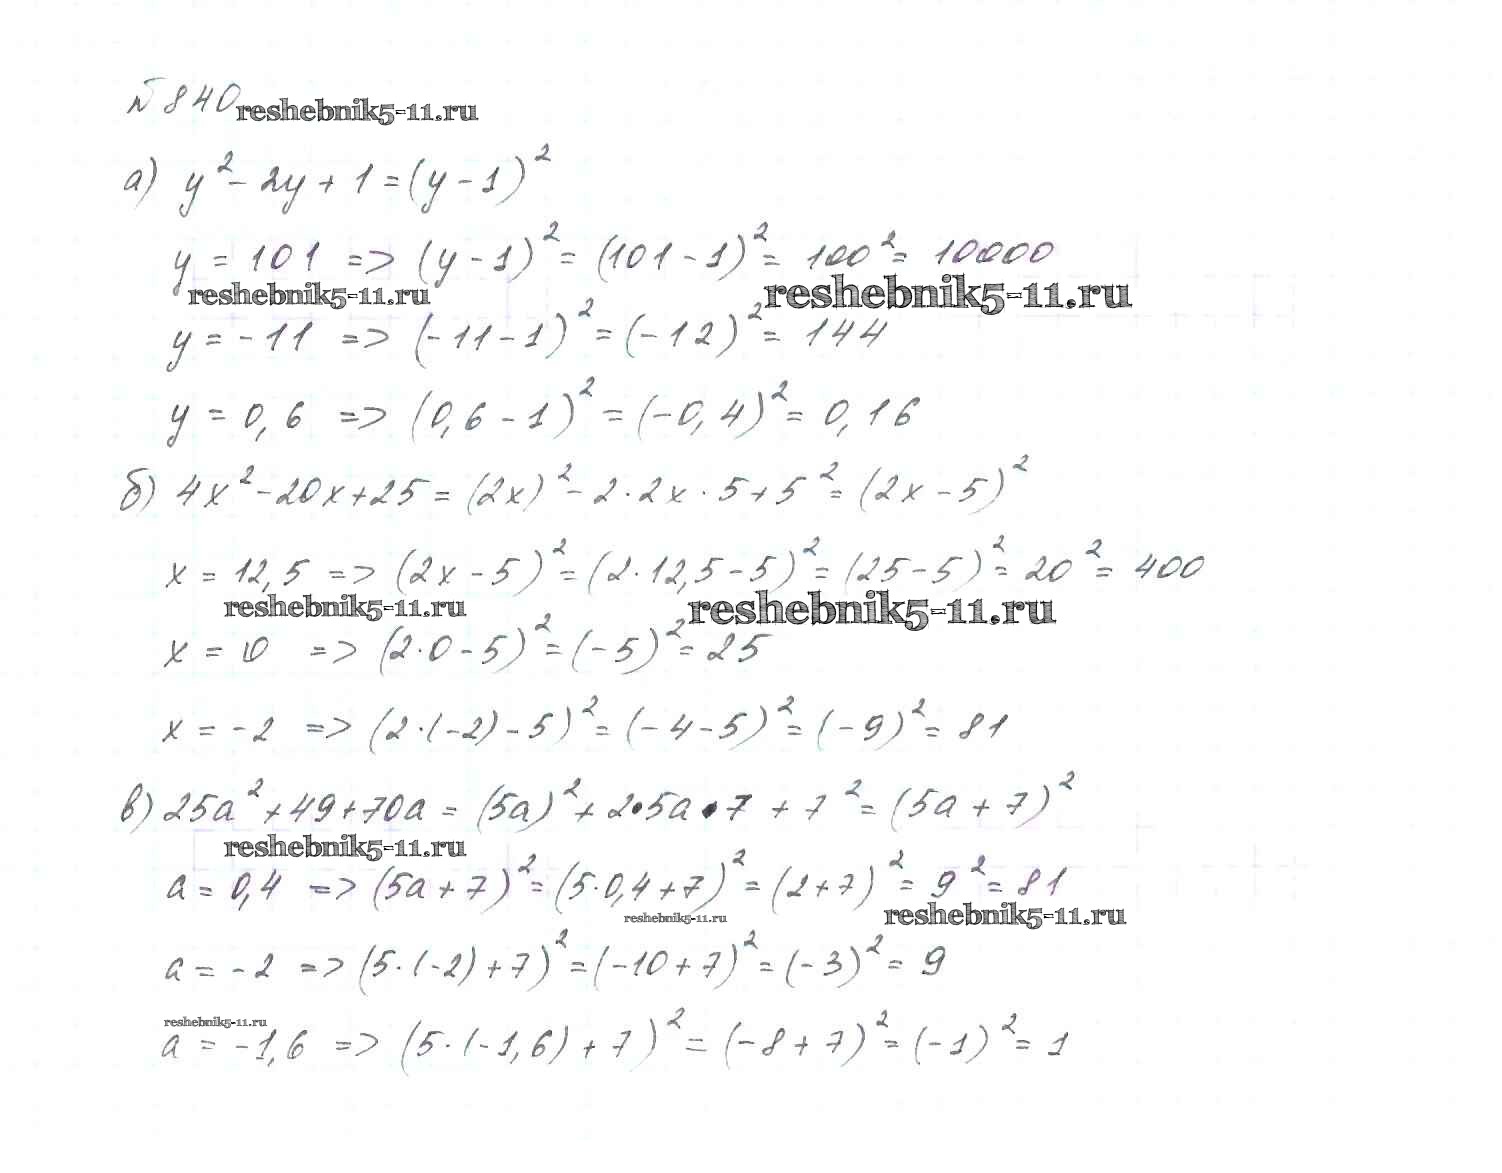 №840 reshebnik5-11.ru
а) y² - 2y + 1 = (y - 1)²
y = 101 => (y - 1)² = (101 - 1)² = 100² = 10000
reshebnik5-11.ru reshebnik5-11.ru
y = -11 => (-11 - 1)² = (-12)² = 144
y = 0,6 => (0,6 - 1)² = (-0,4)² = 0,16
б) 4x² - 20x + 25 = (2x)² - 2·2x·5 + 5² = (2x - 5)²
x = 12,5 => (2x - 5)² = (2·12,5 - 5)² = (25 - 5)² = 20² = 400
reshebnik5-11.ru reshebnik5-11.ru
x = 0 => (2·0 - 5)² = (-5)² = 25
x = -2 => (2·(-2) - 5)² = (-4 - 5)² = (-9)² = 81
в) 25a² + 49 + 70a = (5a)² + 2·5a·7 + 7² = (5a + 7)²
reshebnik5-11.ru
a = 0,4 => (5a + 7)² = (5·0,4 + 7)² = (2 + 7)² = 9² = 81
reshebnik5-11.ru reshebnik5-11.ru
a = -2 => (5·(-2) + 7)² = (-10 + 7)² = (-3)² = 9
reshebnik5-11.ru
a = -1,6 => (5·(-1,6) + 7)² = (-8 + 7)² = (-1)² = 1